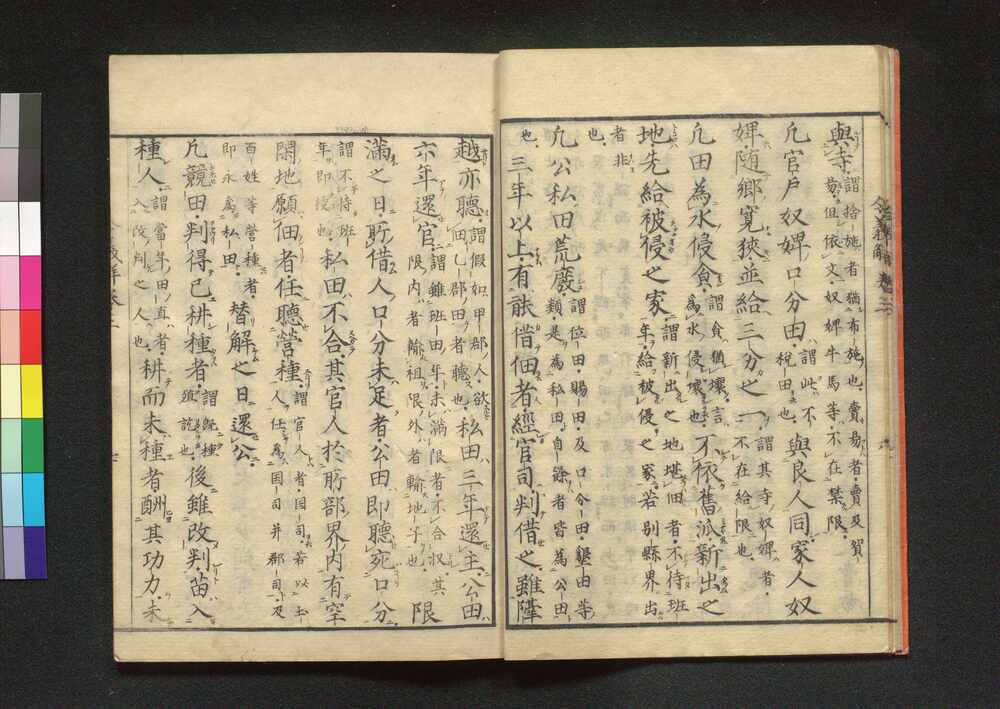 與寺。謂。捨施者。猶布施也。賣易者。賣及貿
易。但依文。奴婢牛馬等。不在禁限。
凡官戸奴婢口分田。謂。此不
税田也。與良人同家人奴
婢。随郷寛狹並給三分之一。謂。其寺奴婢者。
不在給限也。
凡田為水侵食。謂。食猶壞。言。
為水侵壞也。不依舊派新出之
地先給被侵之家。謂。新出之地堪佃者。不待班
年給被侵之家。若別縣界出
者非
也。
凡公私田荒廢。謂。位田。賜田。及口分田。墾田等
類。是為私田。自餘者皆為公田
也。三年以上。有能借佃者經官司判借之雖隔
越亦聽。謂。假如。甲郡人。欲
田乙郡田者聽也。私田三年還主。公田
六年還官。謂。雖班田年未滿限者。不合收。其
限内者輸租。限外者輸地子也。限
滿之日。所借人口分未足者。公田即聽充口分。
謂。不待班
年即授也。私田不合其官人於所部界内有空
閑地願佃者。任聽營種。謂。官人者。國司。若以土
人。任為國司。并郡司。及
百姓等營種者。
即永為私田。替解之日還公。
凡競田。判得已耕種者。謂。既種
殖訖也。後雖改判苗入
種人。謂。當年田直者。
入改判之人也。耕而未種者酬其功力。未